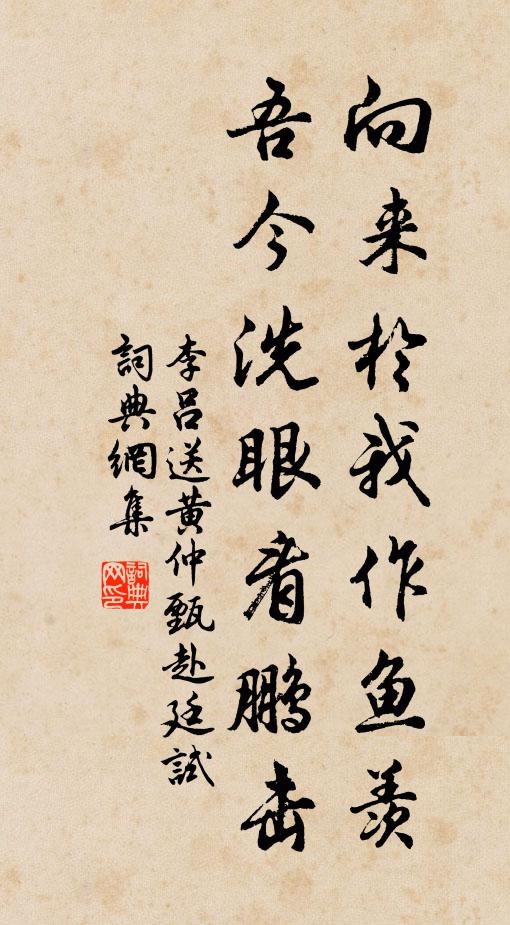 向来於我作鱼羡
吾今洗眼看鹏击
李吕送黄仲甄赴廷試
詞典網集
詞典网印